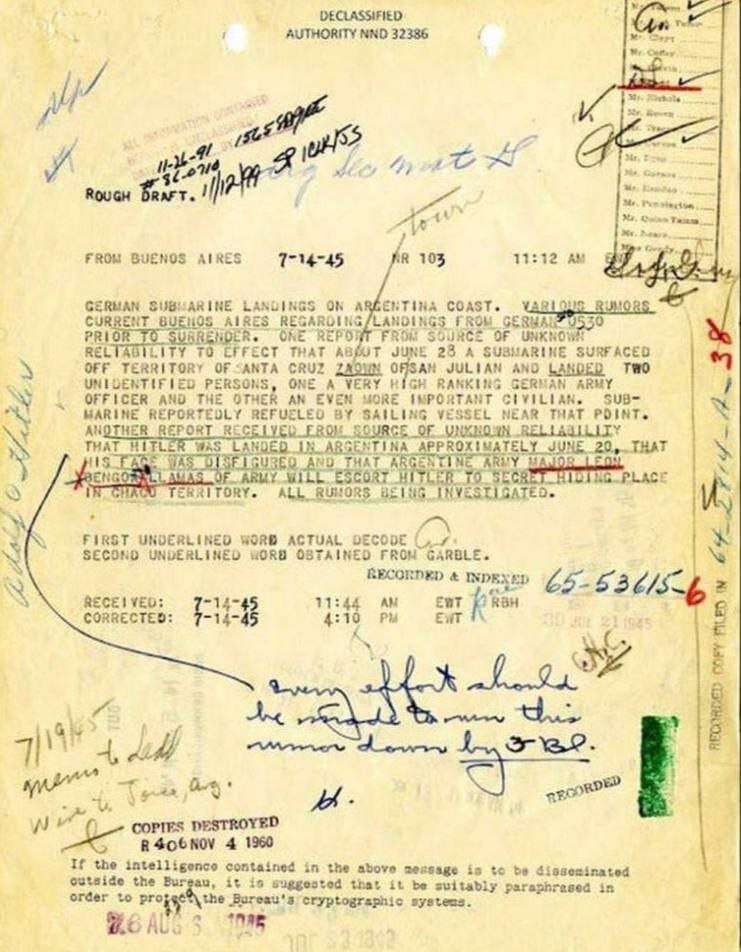 DECLASSIFIED
AUTHORITY NND 32386
Mr. Clegg
Mr. Coffey
Mr. Nichols
Mr. Rosen
Mr. Carson
Mr. Egan
Mr. Hendon
Mr. Pennington
Mr. Quinn Tamm
Mr. Nease
Miss Gandy
ALL INFORMATION CONTAINED
11-26-91
#86-0710
ROUGH DRAFT. 11/12/99
town
FROM BUENOS AIRES 7-14-45 NR 103 11:12 AM
GERMAN SUBMARINE LANDINGS ON ARGENTINA COAST. VARIOUS RUMORS
CURRENT BUENOS AIRES REGARDING LANDINGS FROM GERMAN 0530
PRIOR TO SURRENDER. ONE REPORT FROM SOURCE OF UNKNOWN
RELIABILITY TO EFFECT THAT ABOUT JUNE 28 A SUBMARINE SURFACED
OFF TERRITORY OF SANTA CRUZ ZAOWN OF SAN JULIAN AND LANDED TWO
UNIDENTIFIED PERSONS, ONE A VERY HIGH RANKING GERMAN ARMY
OFFICER AND THE OTHER AN EVEN MORE IMPORTANT CIVILIAN. SUB-
MARINE REPORTEDLY REFUELED BY SAILING VESSEL NEAR THAT POINT.
ANOTHER REPORT RECEIVED FROM SOURCE OF UNKNOWN RELIABILITY
THAT HITLER WAS LANDED IN ARGENTINA APPROXIMATELY JUNE 20, THAT
HIS FACE WAS DISFIGURED AND THAT ARGENTINE ARMY MAJOR LEON
BENGOA LLAMAS OF ARMY WILL ESCORT HITLER TO SECRET HIDING PLACE
IN CHACO TERRITORY. ALL RUMORS BEING INVESTIGATED.
Adolf Hitler
FIRST UNDERLINED WORD ACTUAL DECODE
SECOND UNDERLINED WORD OBTAINED FROM GARBLE.
RECORDED & INDEXED 65-53615-6
RECEIVED: 7-14-45 11:44 AM EWT RBH
CORRECTED: 7-14-45 4:10 PM EWT
RECORDED COPY FILED IN 64-2814-A-38
every effort should
be made to run this
rumor down by FBI.
H.
RECORDED
7/19/45
Memo to Ladd
Wire to Joice, Arg.
COPIES DESTROYED
R 406 NOV 4 1960
If the intelligence contained in the above message is to be disseminated
outside the Bureau, it is suggested that it be suitably paraphrased in
order to protect the Bureau's cryptographic systems.
76 AUG 3 1945